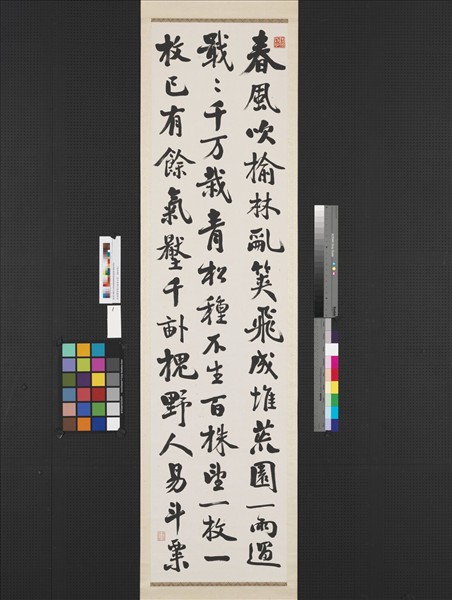 春風吹榆林亂筴飛成堆荒園一雨過
戢〻千万栽青松種不生百株望一枚一
枚已有餘氣壓千畝槐野人易斗粟